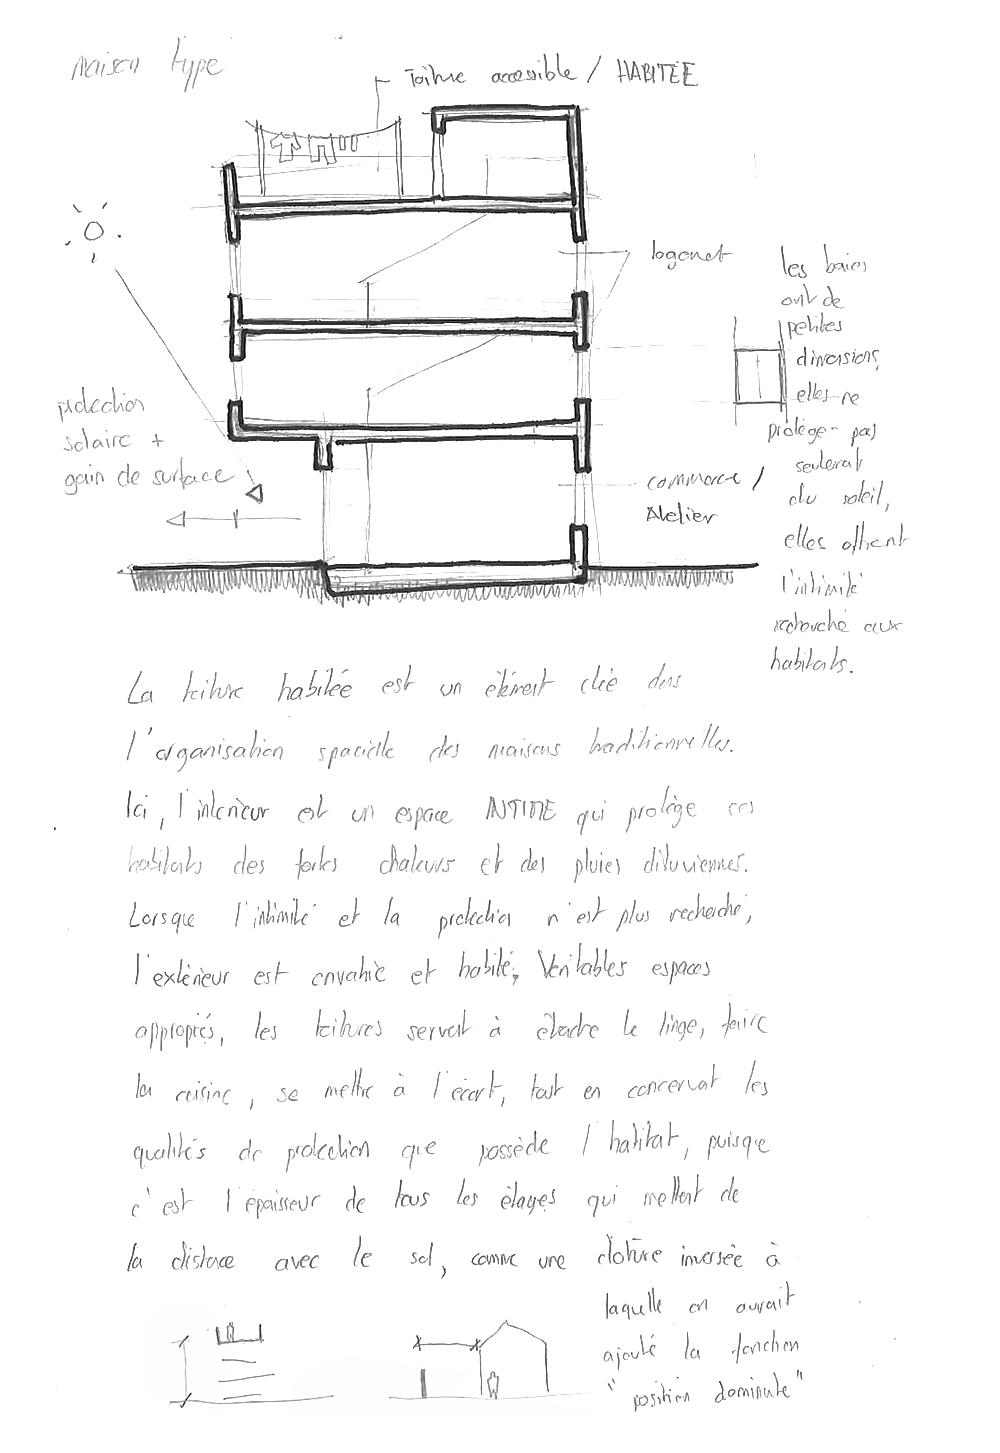 maison type
Toiture accessible / HABITÉE
logement
les baies
ont de
petites
dimensions,
elles ne
protège pas
seulement
du soleil,
elles offrent
l'intimité
recherché aux
habitats.
protection
solaire +
gain de surface
commerce /
Atelier
La toiture habitée est un élément clée dans
l'organisation spacielle des maisons traditionnelles.
Ici, l'intérieur est un espace INTIME qui protège ces
habitats des fortes chaleurs et des pluies diluviennes.
Lorsque l'intimité et la protection n'est plus recherché,
l'extérieur est envahie et habité, Véritables espaces
appropriés, les toitures servent à étendre le linge, faire
la cuisine, se mettre à l'écart, tout en concervant les
qualités de protection que possède l'habitat, puisque
c'est l'épaisseur de tous les étages qui mettent de
la distance avec le sol, comme une clôture inversée à
laquelle on aurait
ajouté la fonction
"position dominante"